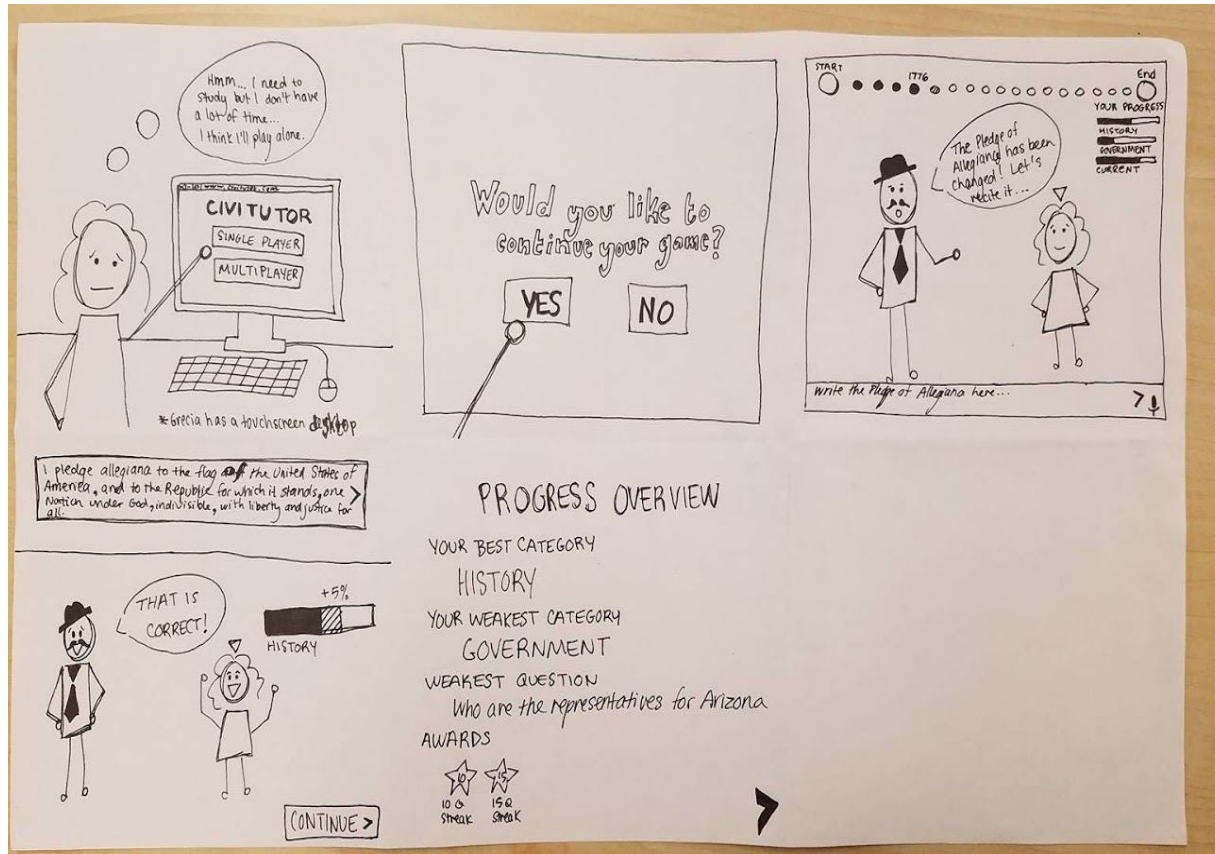 Hmm... I need to
study but I don't have
a lot of time...
I think I'll play alone.
CIVITUTOR
SINGLE PLAYER
MULTIPLAYER
*Grecia has a touchscreen desktop
Would you like to
continue your game?
YES
NO
START
1776
End
YOUR PROGRESS
HISTORY
GOVERNMENT
CURRENT
The Pledge of
Allegiance has been
changed! Let's
recite it...
write the Pledge of Allegiana here...
>
I pledge allegiana to the flag of the United States of
America, and to the Republic for which it stands, one >
Nation under God, indivisible, with liberty and justice for
all.
THAT IS
CORRECT!
+5%
HISTORY
CONTINUE >
PROGRESS OVERVIEW
YOUR BEST CATEGORY
HISTORY
YOUR WEAKEST CATEGORY
GOVERNMENT
WEAKEST QUESTION
Who are the representatives for Arizona
AWARDS
10 15
10 Q 15 Q
Streak Streak
>